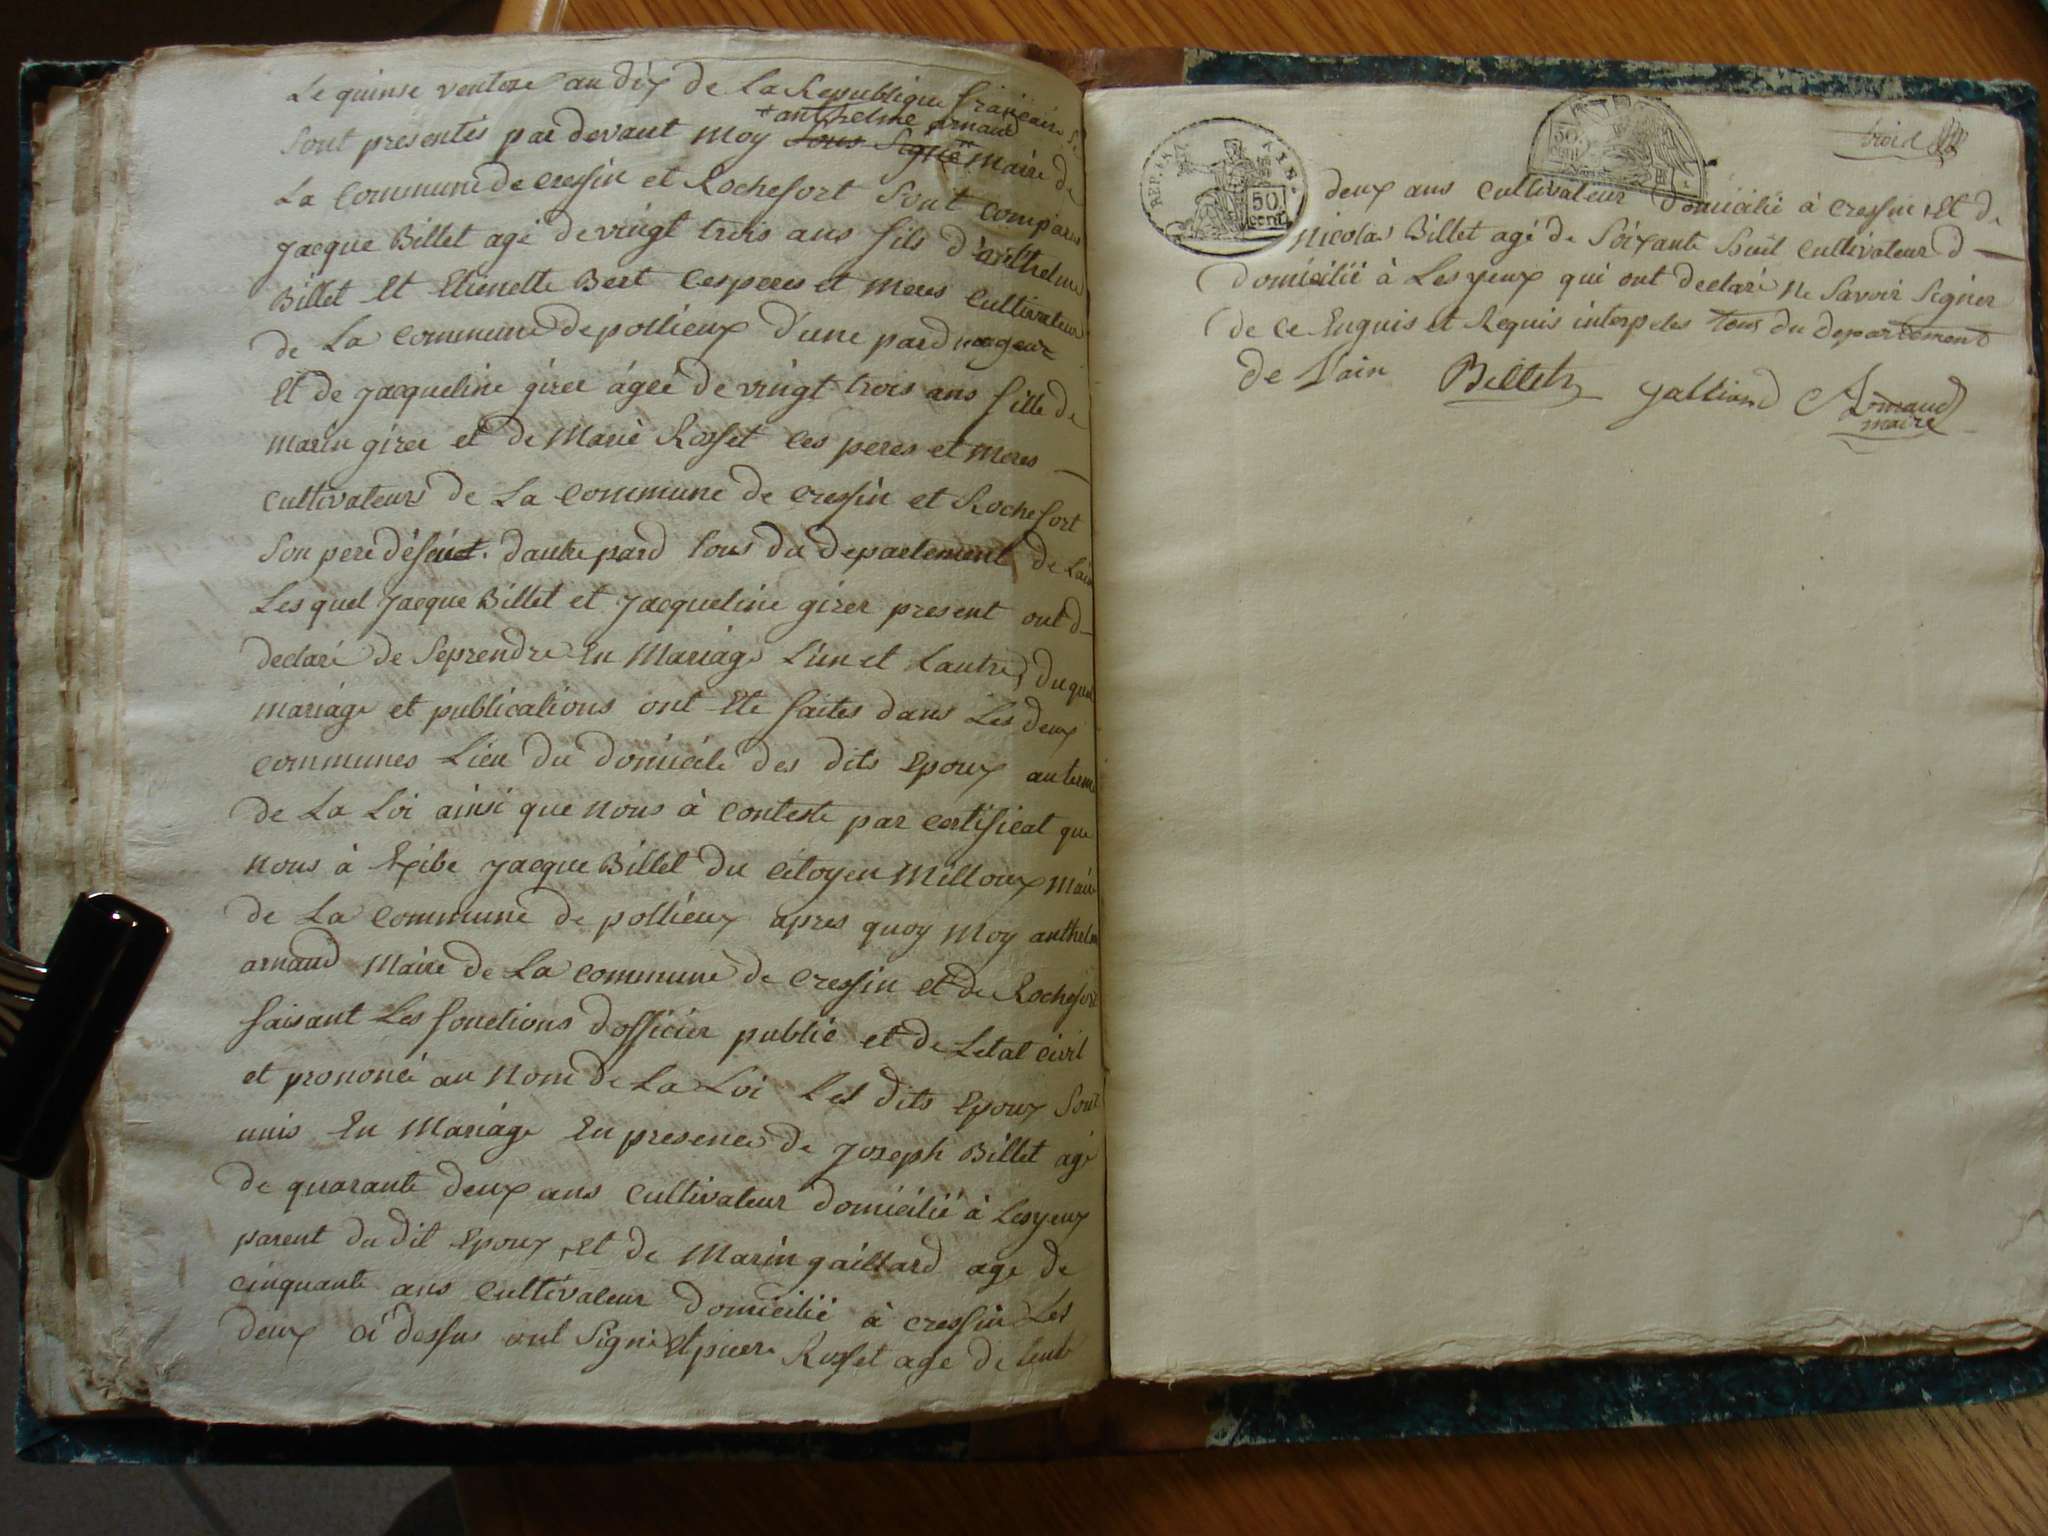 Le quinse ventose an dix de La Republique française Se
+ anthelme arnaud
Sont presentés par devant moy sous signé maire de
La Commune de cressin et Rochefort Sont comparus
jacque Billet agé de vingt trois ans fils d'anthelme
Billet Et Etienette Bert Ces peres et meres Cultivateur
de La Commune de pollieux d'une pard mageur
Et de jacqueline girer ágée de vingt trois ans fille de
marin girer et de Marie Rosset Ces peres et meres
Cultivateurs de La Commune de cressin et Rochefort
Son pere défunt. dautre pard tous du departement de Lain
Lesquel jacque Billet et jacqueline girer present ont d
declaré de Seprendre En Mariage L'un et Lautre, duquel
mariage et publications ont Eté faites dans Les deux
Communes Lieu du domicile des dits Epoux au terme
de La Loi ainsi que nous à conteste par certificat que
nous à Exibe jacque Billet du citoyen Milloux maire
de La Commune de pollieux apres quoy moy anthelme
arnaud Maire de La commune de cressin et de Rochefort
faisant Les fonctions dofficier public et de Letat civil
et prononcé au nom de La Loi Les dits Epoux Sont
unis En Mariage En presence de Joseph Billet agé
de quarante deux ans Cultivateur domicilié à Lesyeux
parent du dit Epoux, Et de Marin gaillard age de
cinquante ans Cultivateur domicilié à cressin Les
deux ci dessus ont Signé Et pierre Rosset age de trente
trois
REP. FRA
50 cent.
50 cent.
deux ans cultivateur domicilié à cressin, Et de
Nicolas Billet agé de Soixante huit cultivateur d
domicilié à Les yeux qui ont declaré ne Savoir Signer
de ce Enquis et Requis interpeles tous du departement
de L'ain Billet galliard Arnaud
maire